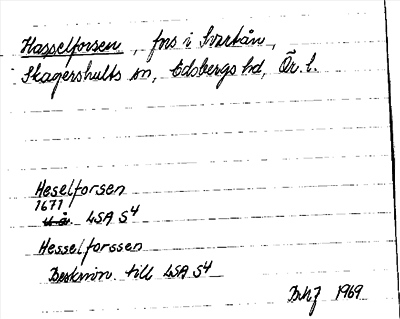 Hasselforsen, fors i Svartån,
Skagershults sn, Edsbergs hd, Ör. l.
Heselforsen
1671
u å. LSA S4
Hesselforssen
Beskrivn. till LSA S4
1969